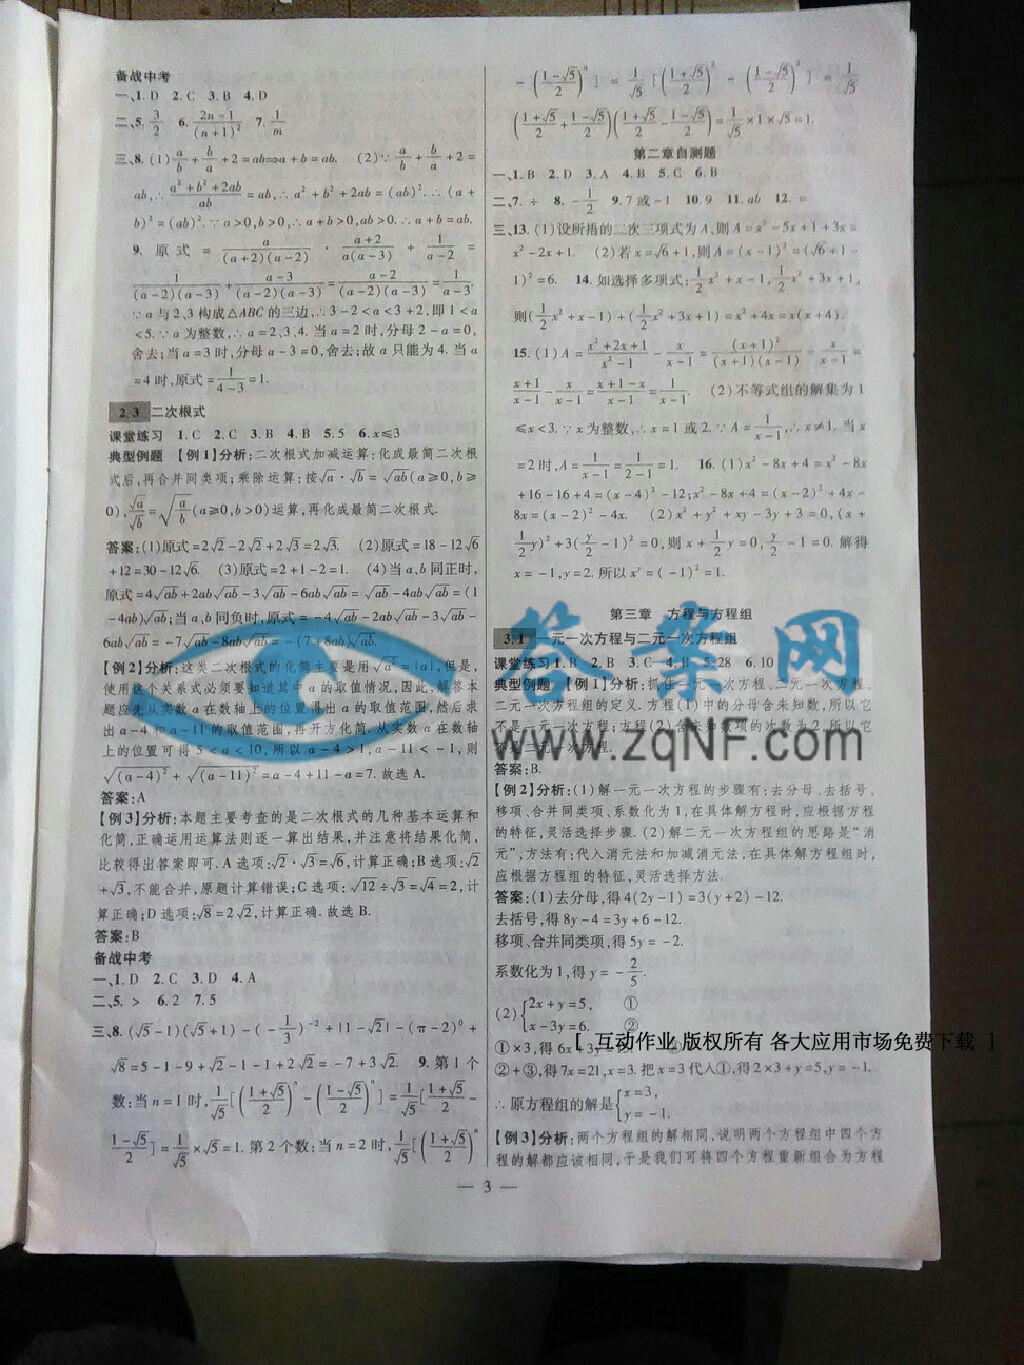 备战中考
一、1. D 2. C 3. B 4. D
二、5. 3/2 6. (2n-1)/(n+1)² 7. 1/m
三、8. (1) a/b + b/a + 2 = ab⇒a+b=ab. (2)∵ a/b + b/a + 2 =
ab,∴ (a²+b²+2ab)/ab = ab,∴ a²+b²+2ab=(ab)².∴(a+
b)²=(ab)².∵a>0,b>0,∴a+b>0,ab>0.∴a+b=ab.
9. 原式 = a/((a+2)(a-2)) · (a+2)/(a(a-3)) + 1/(a-2) =
1/((a-2)(a-3)) + (a-3)/((a-2)(a-3)) = (a-2)/((a-2)(a-3)) = 1/(a-3).
∵a与2,3构成△ABC的三边,∴3-2<a<3+2,即1<a
<5.∵a为整数,∴a=2,3,4.当a=2时,分母2-a=0,
舍去;当a=3时,分母a-3=0,舍去;故a只能为4.当a
=4时,原式= 1/(4-3) =1.
2.3 二次根式
课堂练习 1. C 2. C 3. B 4. B 5. 5 6. x≤3
典型例题 【例1】分析:二次根式加减运算:化成最简二次根
式后,再合并同类项;乘除运算:按√a·√b=√ab(a≥0,b≥
0),√a/√b=√(a/b)(a≥0,b>0)运算,再化成最简二次根式.
答案:(1)原式=2√2-2√2+2√3=2√3. (2)原式=18-12√6
+12=30-12√6. (3)原式=2+1-2=1. (4)当a,b同正时,
原式=4√ab+2ab√ab-3√ab-6ab√ab=√ab-4ab√ab=(1
-4ab)√ab;当a,b同负时,原式=-4√ab-2ab√ab-3√ab-
6ab√ab=-7√ab-8ab√ab=-(7+8ab)√ab.
【例2】分析:这类二次根式的化简主要是用√a²=|a|,但是,
使用这个关系式必须要知道其中a的取值情况,因此,解答本
题应先从实数a在数轴上的位置得出a的取值范围,然后求
出a-4和a-11的取值范围,再开方化简.从实数a在数轴
上的位置可得5<a<10,所以a-4>1,a-11<-1,则
√(a-4)²+√(a-11)²=a-4+11-a=7.故选A.
答案:A
【例3】分析:本题主要考查的是二次根式的几种基本运算和
化简.正确运用运算法则逐一算出结果,并注意将结果化简,
比较得出答案即可.A选项:√2·√3=√6,计算正确;B选项:√2
+√3,不能合并,原题计算错误;C选项:√12÷√3=√4=2,计
算正确;D选项:√8=2√2,计算正确.故选B.
答案:B
备战中考
一、1. D 2. C 3. D 4. A
二、5. > 6. 2 7. 5
三、8. (√5-1)(√5+1)-(-1/3)⁻²+|1-√2|-(π-2)⁰+
√8=5-1-9+√2-1-1+2√2=-7+3√2. 9. 第1个
数:当n=1时,1/√5[((1+√5)/2)ⁿ-((1-√5)/2)ⁿ]=1/√5[(1+√5)/2-
(1-√5)/2]=1/√5×√5=1.第2个数:当n=2时,1/√5[((1+√5)/2)ⁿ
-((1-√5)/2)ⁿ]=1/√5[((1+√5)/2)²-((1-√5)/2)²]=1/√5
((1+√5)/2+(1-√5)/2)((1+√5)/2-(1-√5)/2)=1/√5×1×√5=1.
第二章自测题
一、1. B 2. D 3. A 4. B 5. C 6. B
二、7. ÷ 8. -1/2 9. 7或-1 10. 9 11. ab 12. =
三、13. (1)设所捂的二次三项式为A,则A=x²-5x+1+3x=
x²-2x+1. (2)若x=√6+1,则A=(x-1)²=(√6+1-
1)²=6. 14. 如选择多项式:1/2x²+x-1,1/2x²+3x+1,
则(1/2x²+x-1)+(1/2x²+3x+1)=x²+4x=x(x+4).
15. (1)A=(x²+2x+1)/(x²-1)-x/(x-1)=(x+1)²/((x+1)(x-1))-x/(x-1)=
(x+1)/(x-1)-x/(x-1)=1/(x-1). (2)不等式组的解集为1
≤x<3.∵x为整数,∴x=1或2.∵A=1/(x-1),∴x≠1.当x
=2时,A=1/(x-1)=1/(2-1)=1. 16. (1)x²-8x+4=x²-8x
+16-16+4=(x-4)²-12;x²-8x+4=(x-2)²+4x-
8x=(x-2)²-4x. (2)x²+y²+xy-3y+3=0,(x+
1/2y)²+3(y/2-1)²=0,则x+1/2y=0,y/2-1=0.解得
x=-1,y=2.所以xʸ=(-1)²=1.
第三章 方程与方程组
3.1 一元一次方程与二元一次方程组
课堂练习 1. B 2. B 3. C 4. B 5. 28 6. 10
典型例题 【例1】分析:抓住一元一次方程、二元一次方程、
二元一次方程组的定义.方程(1)中的分母含未知数,所以它
不是一元一次方程;方程(2)含未知数项的次数为2,所以它
不是二元一次方程.
答案:B.
【例2】分析:(1)解一元一次方程的步骤有:去分母、去括号、
移项、合并同类项、系数化为1,在具体解方程时,应根据方程
的特征,灵活选择步骤.(2)解二元一次方程组的思路是“消
元”,方法有:代入消元法和加减消元法,在具体解方程组时,
应根据方程组的特征,灵活选择方法.
答案:(1)去分母,得4(2y-1)=3(y+2)-12.
去括号,得8y-4=3y+6-12.
移项、合并同类项,得5y=-2.
系数化为1,得y=-2/5.
(2){2x+y=5, ①
x-3y=6. ②
①×3,得6x+3y=15.③
②+③,得7x=21,x=3.把x=3代入①,得2×3+y=5,y=-1.
∴原方程组的解是{x=3,
y=-1.
【例3】分析:两个方程组的解相同,说明两个方程组中四个方
程的解都应该相同,于是我们可将四个方程重新组合为方程
— 3 —
答案网
www.zqNF.com
[ 互动作业 版权所有 各大应用市场免费下载 ]